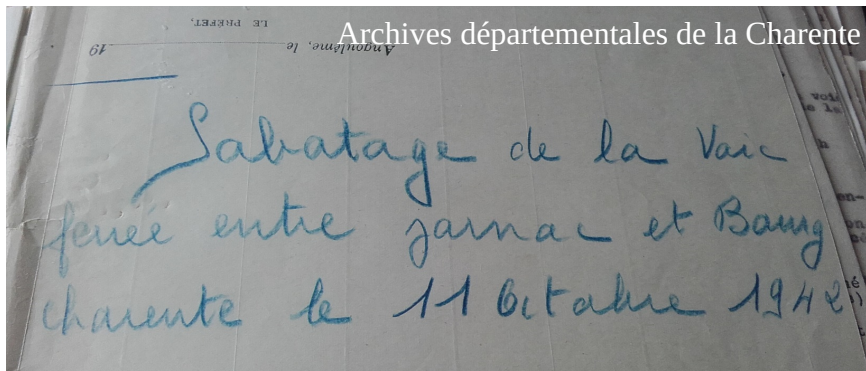 LE PRÉFET,
Archives départementales de la Charente
Angoulême, le 19
Sabotage de la Voie
ferrée entre Jarnac et Bourg
charente le 11 Octobre 1942